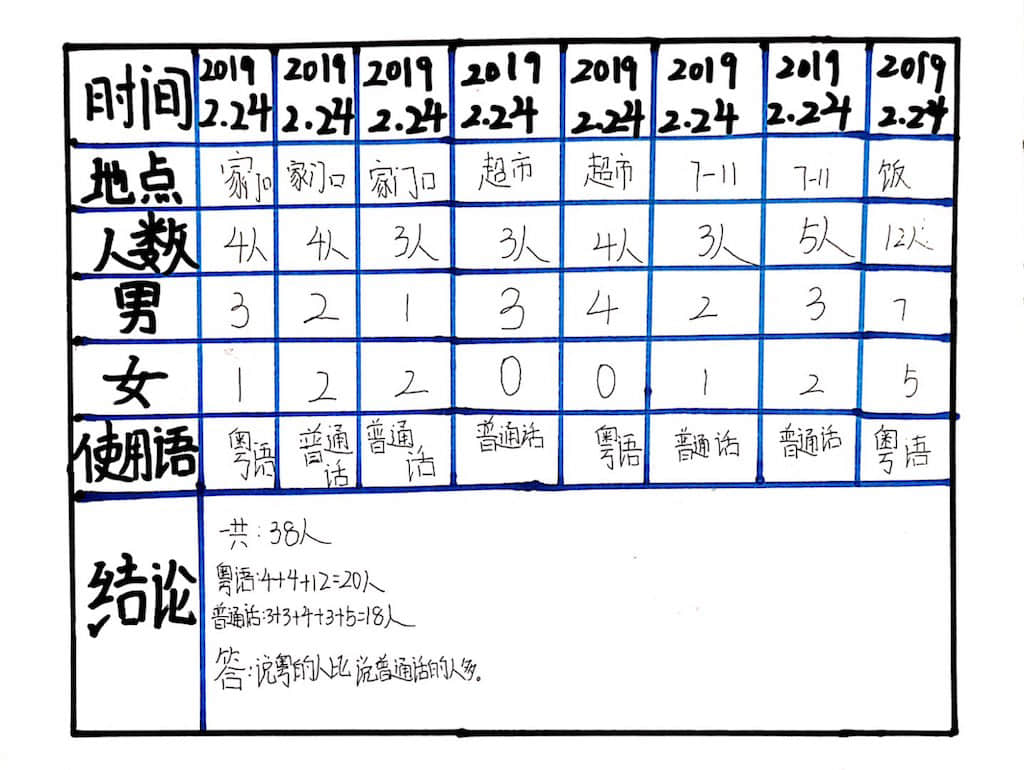 时间 2019 2.24 2019 2.24 2019 2.24 2019 2.24 2019 2.24 2019 2.24 2019 2.24 2019 2.24
地点 家门口 家门口 家门口 超市 超市 7-11 7-11 饭
人数 4人 4人 3人 3人 4人 3人 5人 12人
男 3 2 1 3 4 2 3 7
女 1 2 2 0 0 1 2 5
使用语 粤语 普通话 普通话 普通话 粤语 普通话 普通话 粤语
结论
一共:38人
粤语:4+4+12=20人
普通话:3+3+4+3+5=18人
答:说粤的人比说普通话的人多。